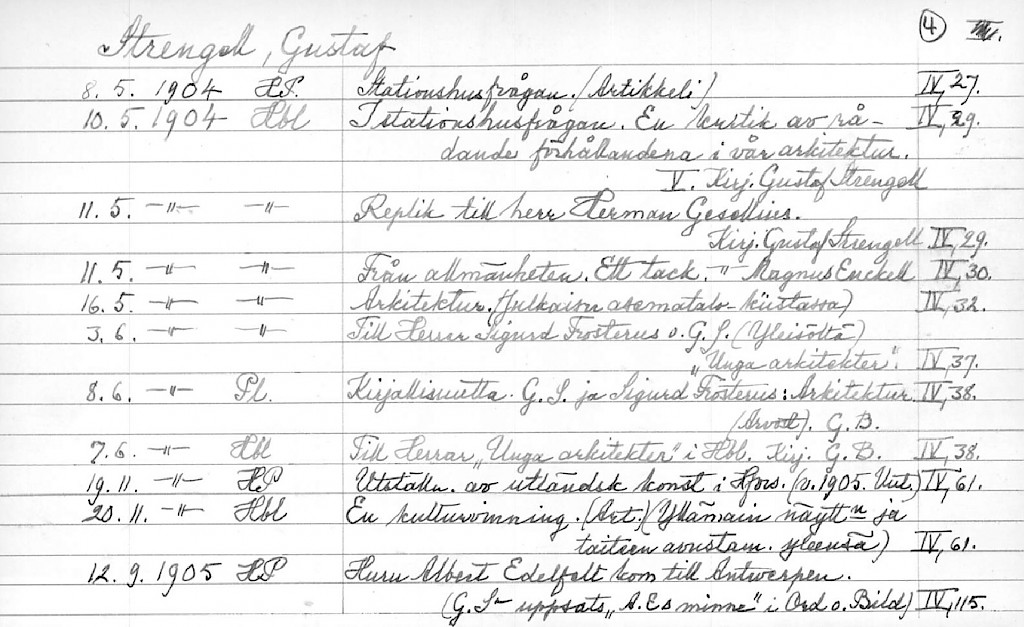 Strengell, Gustaf ④ IV.
8. 5. 1904 H.P. Stationshusfrågan. (Artikkeli) IV, 27.
10. 5. 1904 Hbl I stationshusfrågan. En kritik av rå- IV, 29.
dande förhållandena i vår arkitektur.
V. Kirj. Gustaf Strengell
11. 5. —"— —"— Replik till herr Herman Gesellius.
Kirj. Gustaf Strengell IV, 29.
11. 5. —"— —"— Från allmänheten. Ett tack. —"— Magnus Enckell IV, 30.
16. 5 —"— —"— Arkitektur. (Julkaisu asematalo-kiistassa) IV, 32.
3. 6. —"— —"— Till Herrar Sigurd Frosterus o. G. S. (Yleisöltä)
"Unga arkitekter". IV, 37.
8. 6. —"— Pl. Kirjallisuutta. G. S. ja Sigurd Frosterus: Arkitektur. IV, 38.
(Arvost). G. B.
7. 6. —"— Hbl Till Herrar "Unga arkitekter" i Hbl. Kirj. G. B. IV, 38.
19. 11. —"— HP Utställn. av utländsk konst i Hfors. (v. 1905. Uut.) IV, 61.
20. 11. —"— Hbl En kulturvinning. (Art.) (Yllämain näytt:n ja
taiteen avustam. yleensä) IV, 61.
12. 9. 1905 HP Huru Albert Edelfelt kom till Antwerpen.
(G. S:n uppsats "A. E:s minne" i Ord o. Bild) IV, 115.